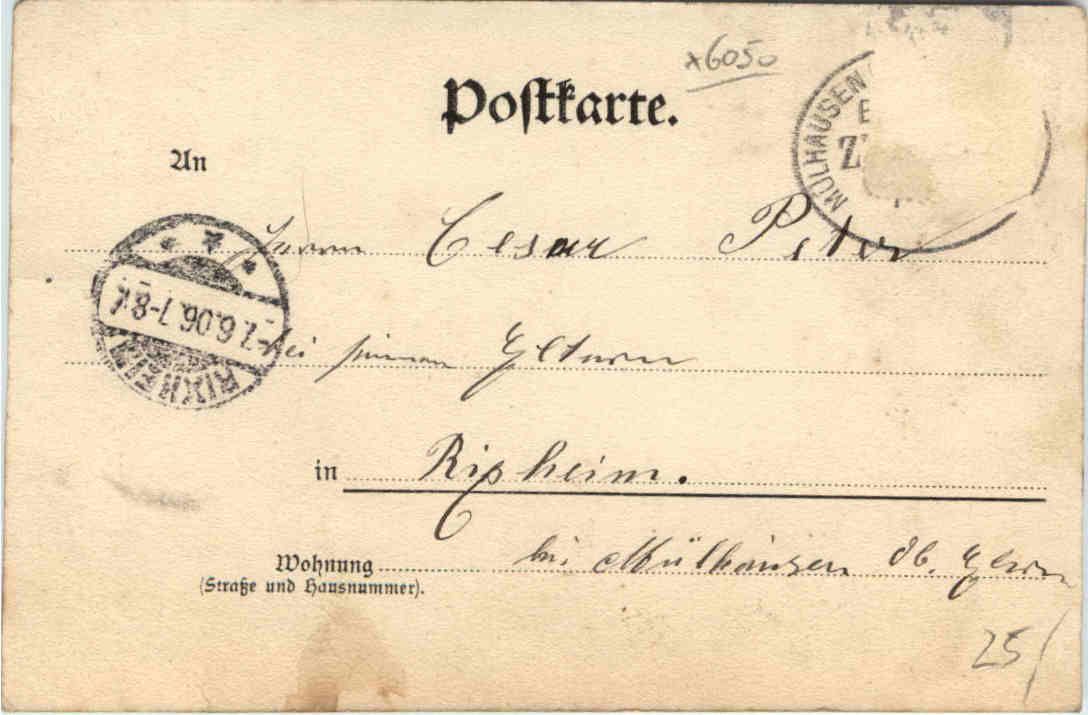 *6050
Postkarte.
MÜLHAUSEN
An
Herrn Cesar Peter
RIXHEIM
7.6.06.7-8V.
bei seinen Eltern
in Rixheim.
Wohnung bei Mülhausen Ob. Elsass
(Straße und Hausnummer).
25/